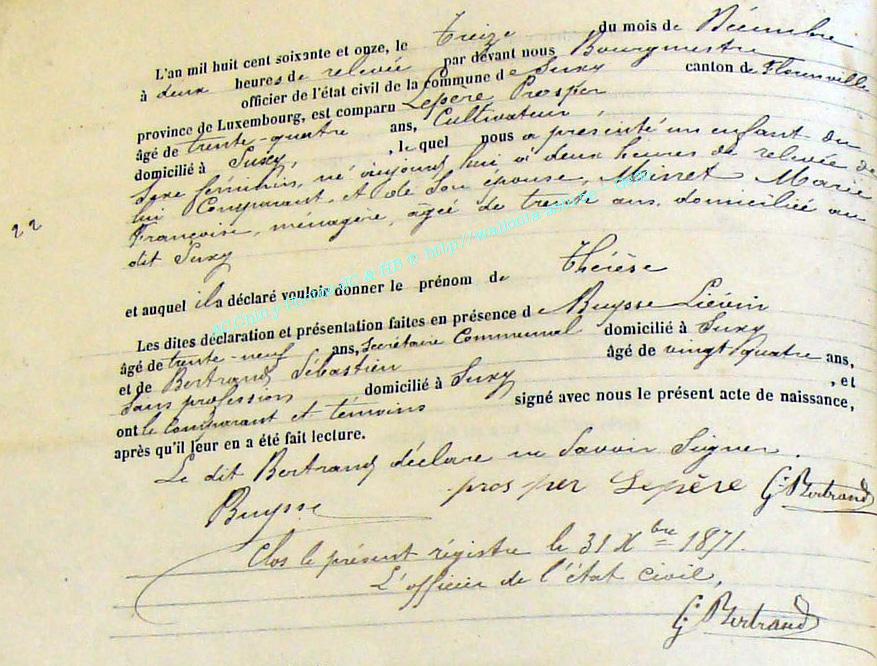 L'an mil huit cent soixante et onze, le treize du mois de Décembre
à deux heures de relevée par devant nous Bourgmestre
officier de l'état civil de la commune de Suxy canton de Florenville
province de Luxembourg, est comparu Lepère Prosper
âgé de trente-quatre ans, Cultivateur,
domicilié à Suxy, , le quel nous a présenté un enfant du
Sexe féminin, né aujourd'hui à deux heures de relevée de
lui Comparant, et de son épouse, Marie
Françoise, ménagère, âgée de trente ans, domiciliée au
dit Suxy
22
et auquel il a déclaré vouloir donner le prénom de Thérèse
Les dites déclaration et présentation faites en présence de Buysse Liévin
âgé de trente-neuf ans, Secrétaire Communal domicilié à Suxy
et de Bertrand Sébastien âgé de vingt-quatre ans,
Sans profession domicilié à Suxy , et
ont le Comparant et témoins signé avec nous le présent acte de naissance,
après qu'il leur en a été fait lecture.
Le dit Bertrand déclare ne Savoir Signer.
Buysse prosper Lepère G. Bertrand
Clos le présent régistre le 31 Xbre 1871.
L'officier de l'état civil,
G. Bertrand